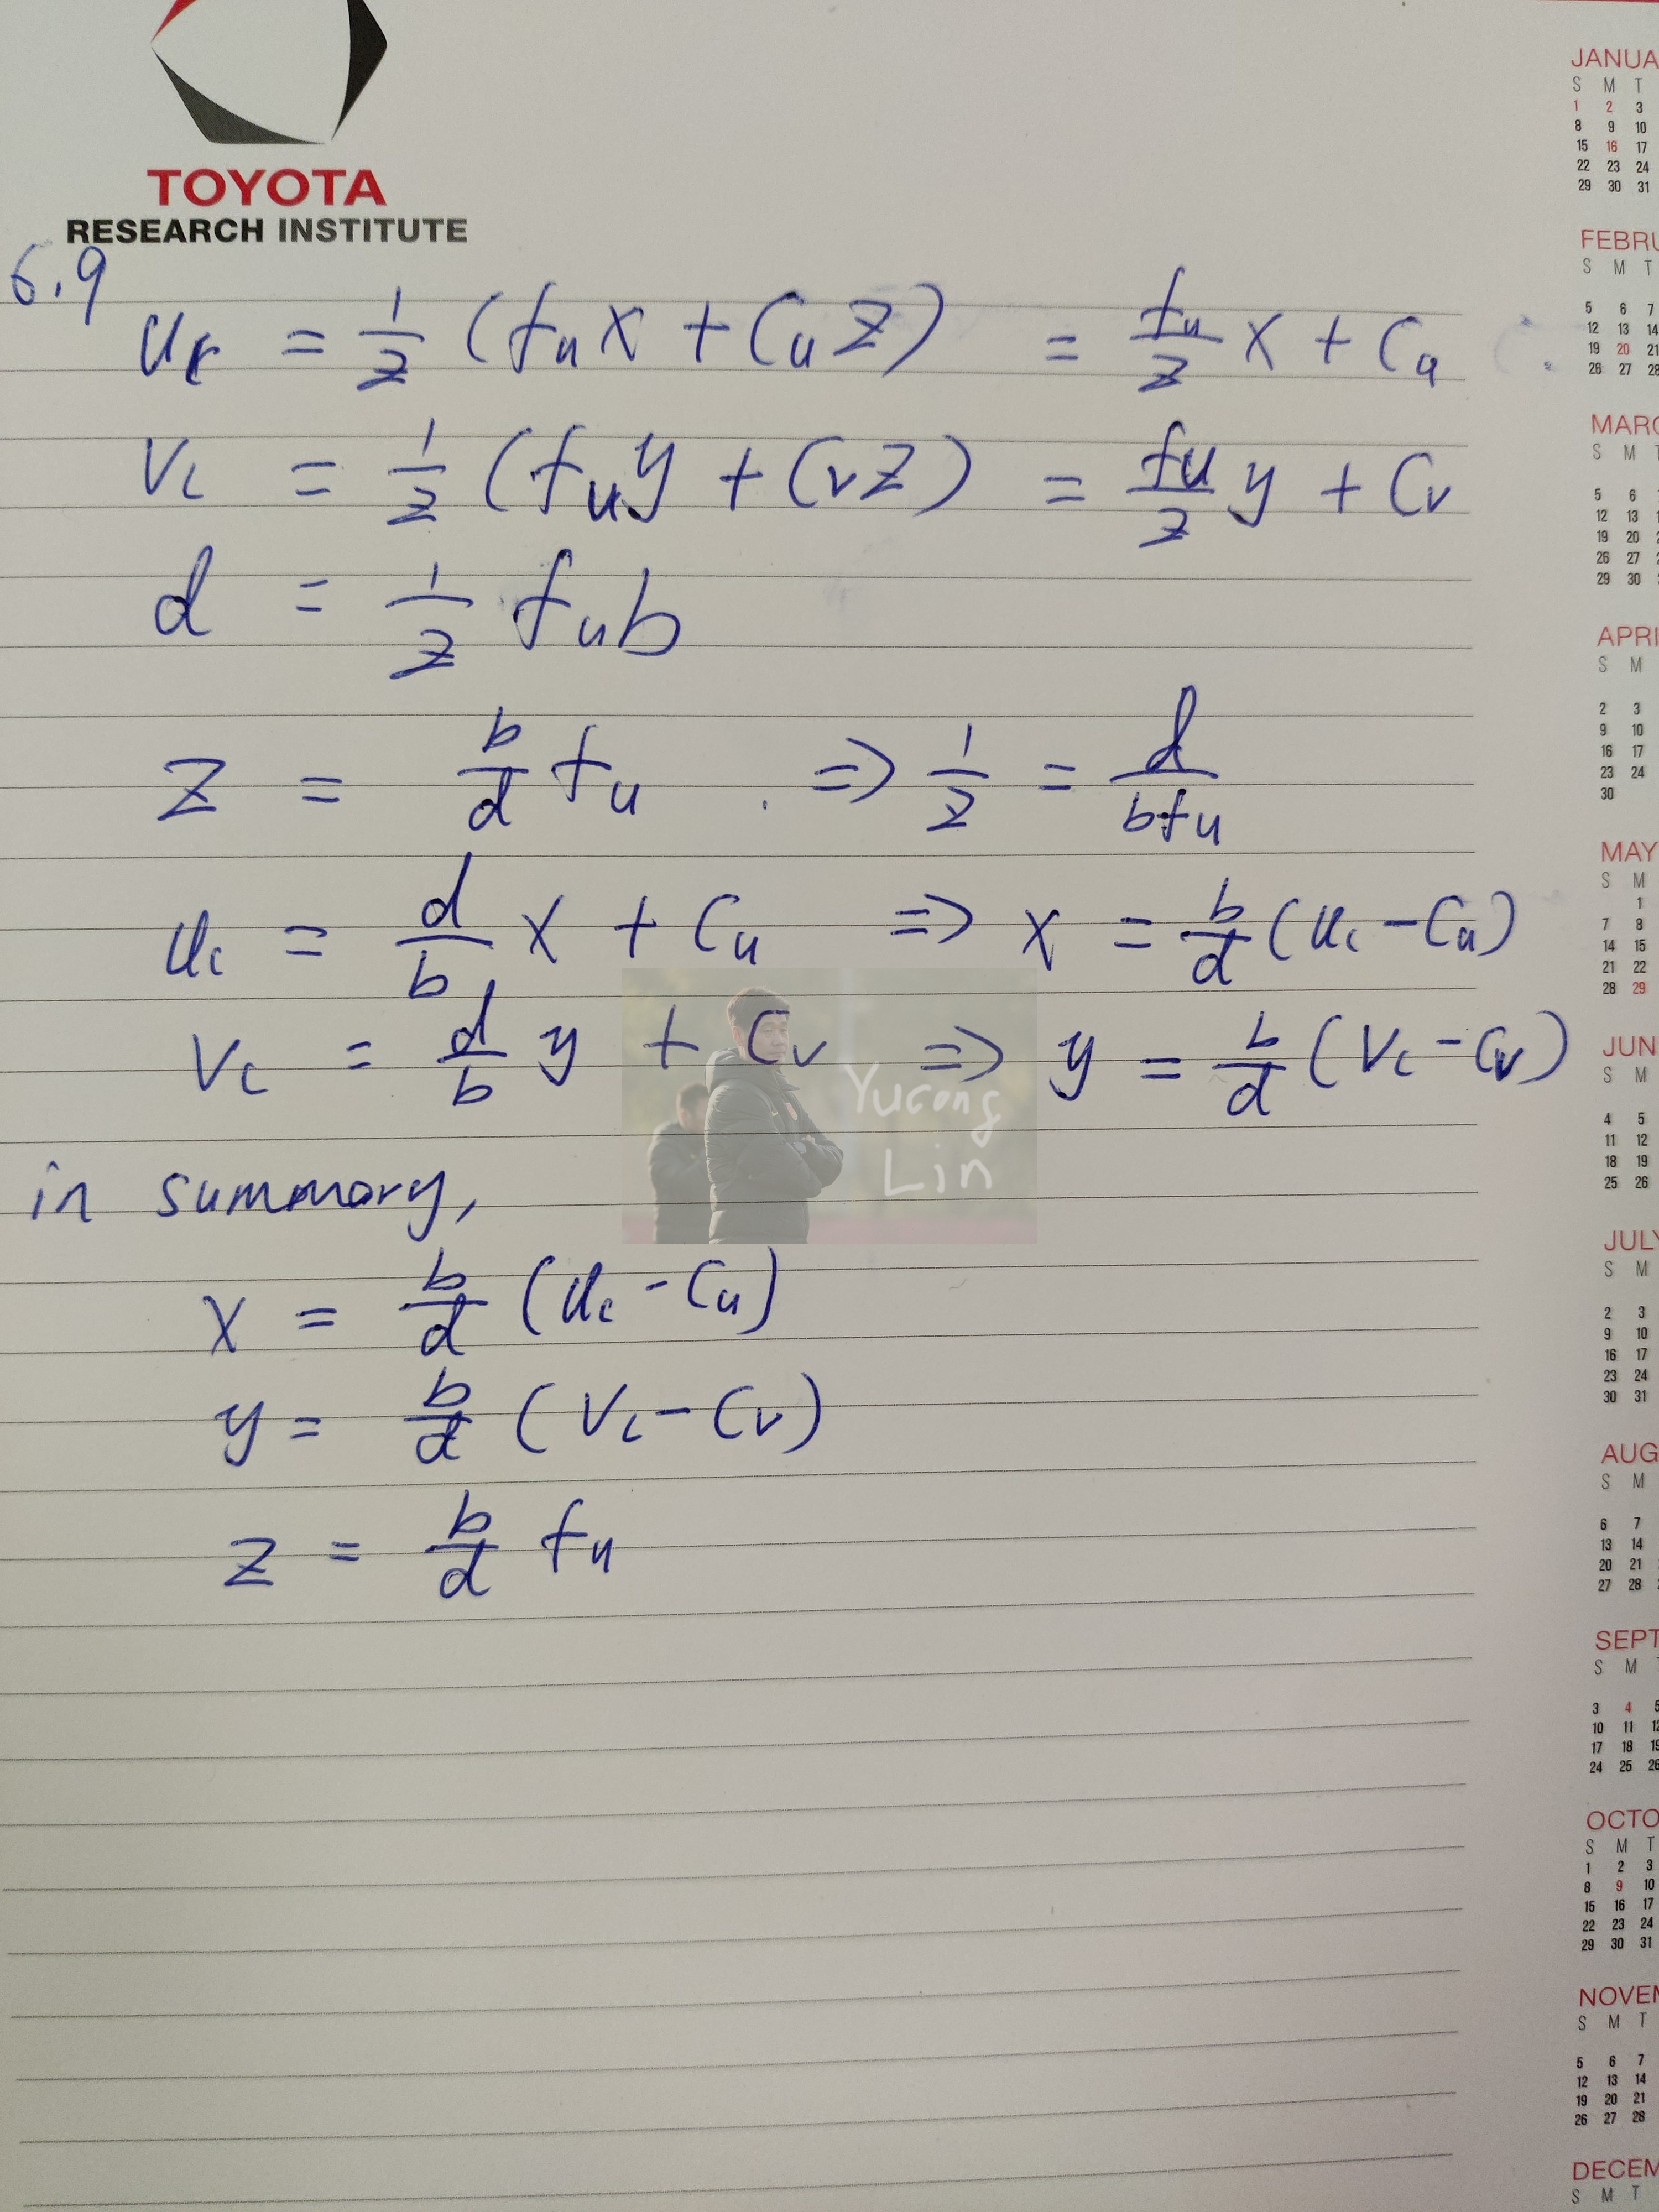 TOYOTA
RESEARCH INSTITUTE
6.9
u_c = 1/z (f_u x + C_u z) = f_u/z x + C_u
v_c = 1/z (f_u y + C_v z) = f_u/z y + C_v
d = 1/z f_u b
z = b/d f_u . ⇒ 1/z = d/(b f_u)
u_c = d/b x + C_u ⇒ x = b/d (u_c - C_u)
v_c = d/b y + C_v ⇒ y = b/d (v_c - C_v)
Yucong
Lin
in summary,
x = b/d (u_c - C_u)
y = b/d (v_c - C_v)
z = b/d f_u
JANUA
S M T
1 2 3
8 9 10
15 16 17
22 23 24
29 30 31
FEBRU
S M T
5 6 7
12 13 14
19 20 21
26 27 28
MARC
S M
5 6
12 13
19 20
26 27
29 30
APRI
S M
2 3
9 10
16 17
23 24
30
MAY
S M
1
7 8
14 15
21 22
28 29
JUN
S M
4 5
11 12
18 19
25 26
JULY
S M
2 3
9 10
16 17
23 24
30 31
AUG
S M
6 7
13 14
20 21
27 28
SEPT
S M
3 4
10 11
17 18
24 25
OCTO
S M T
1 2 3
8 9 10
15 16 17
22 23 24
29 30 31
NOVEM
S M T
5 6 7
12 13 14
19 20 21
26 27 28
DECEM
S M T